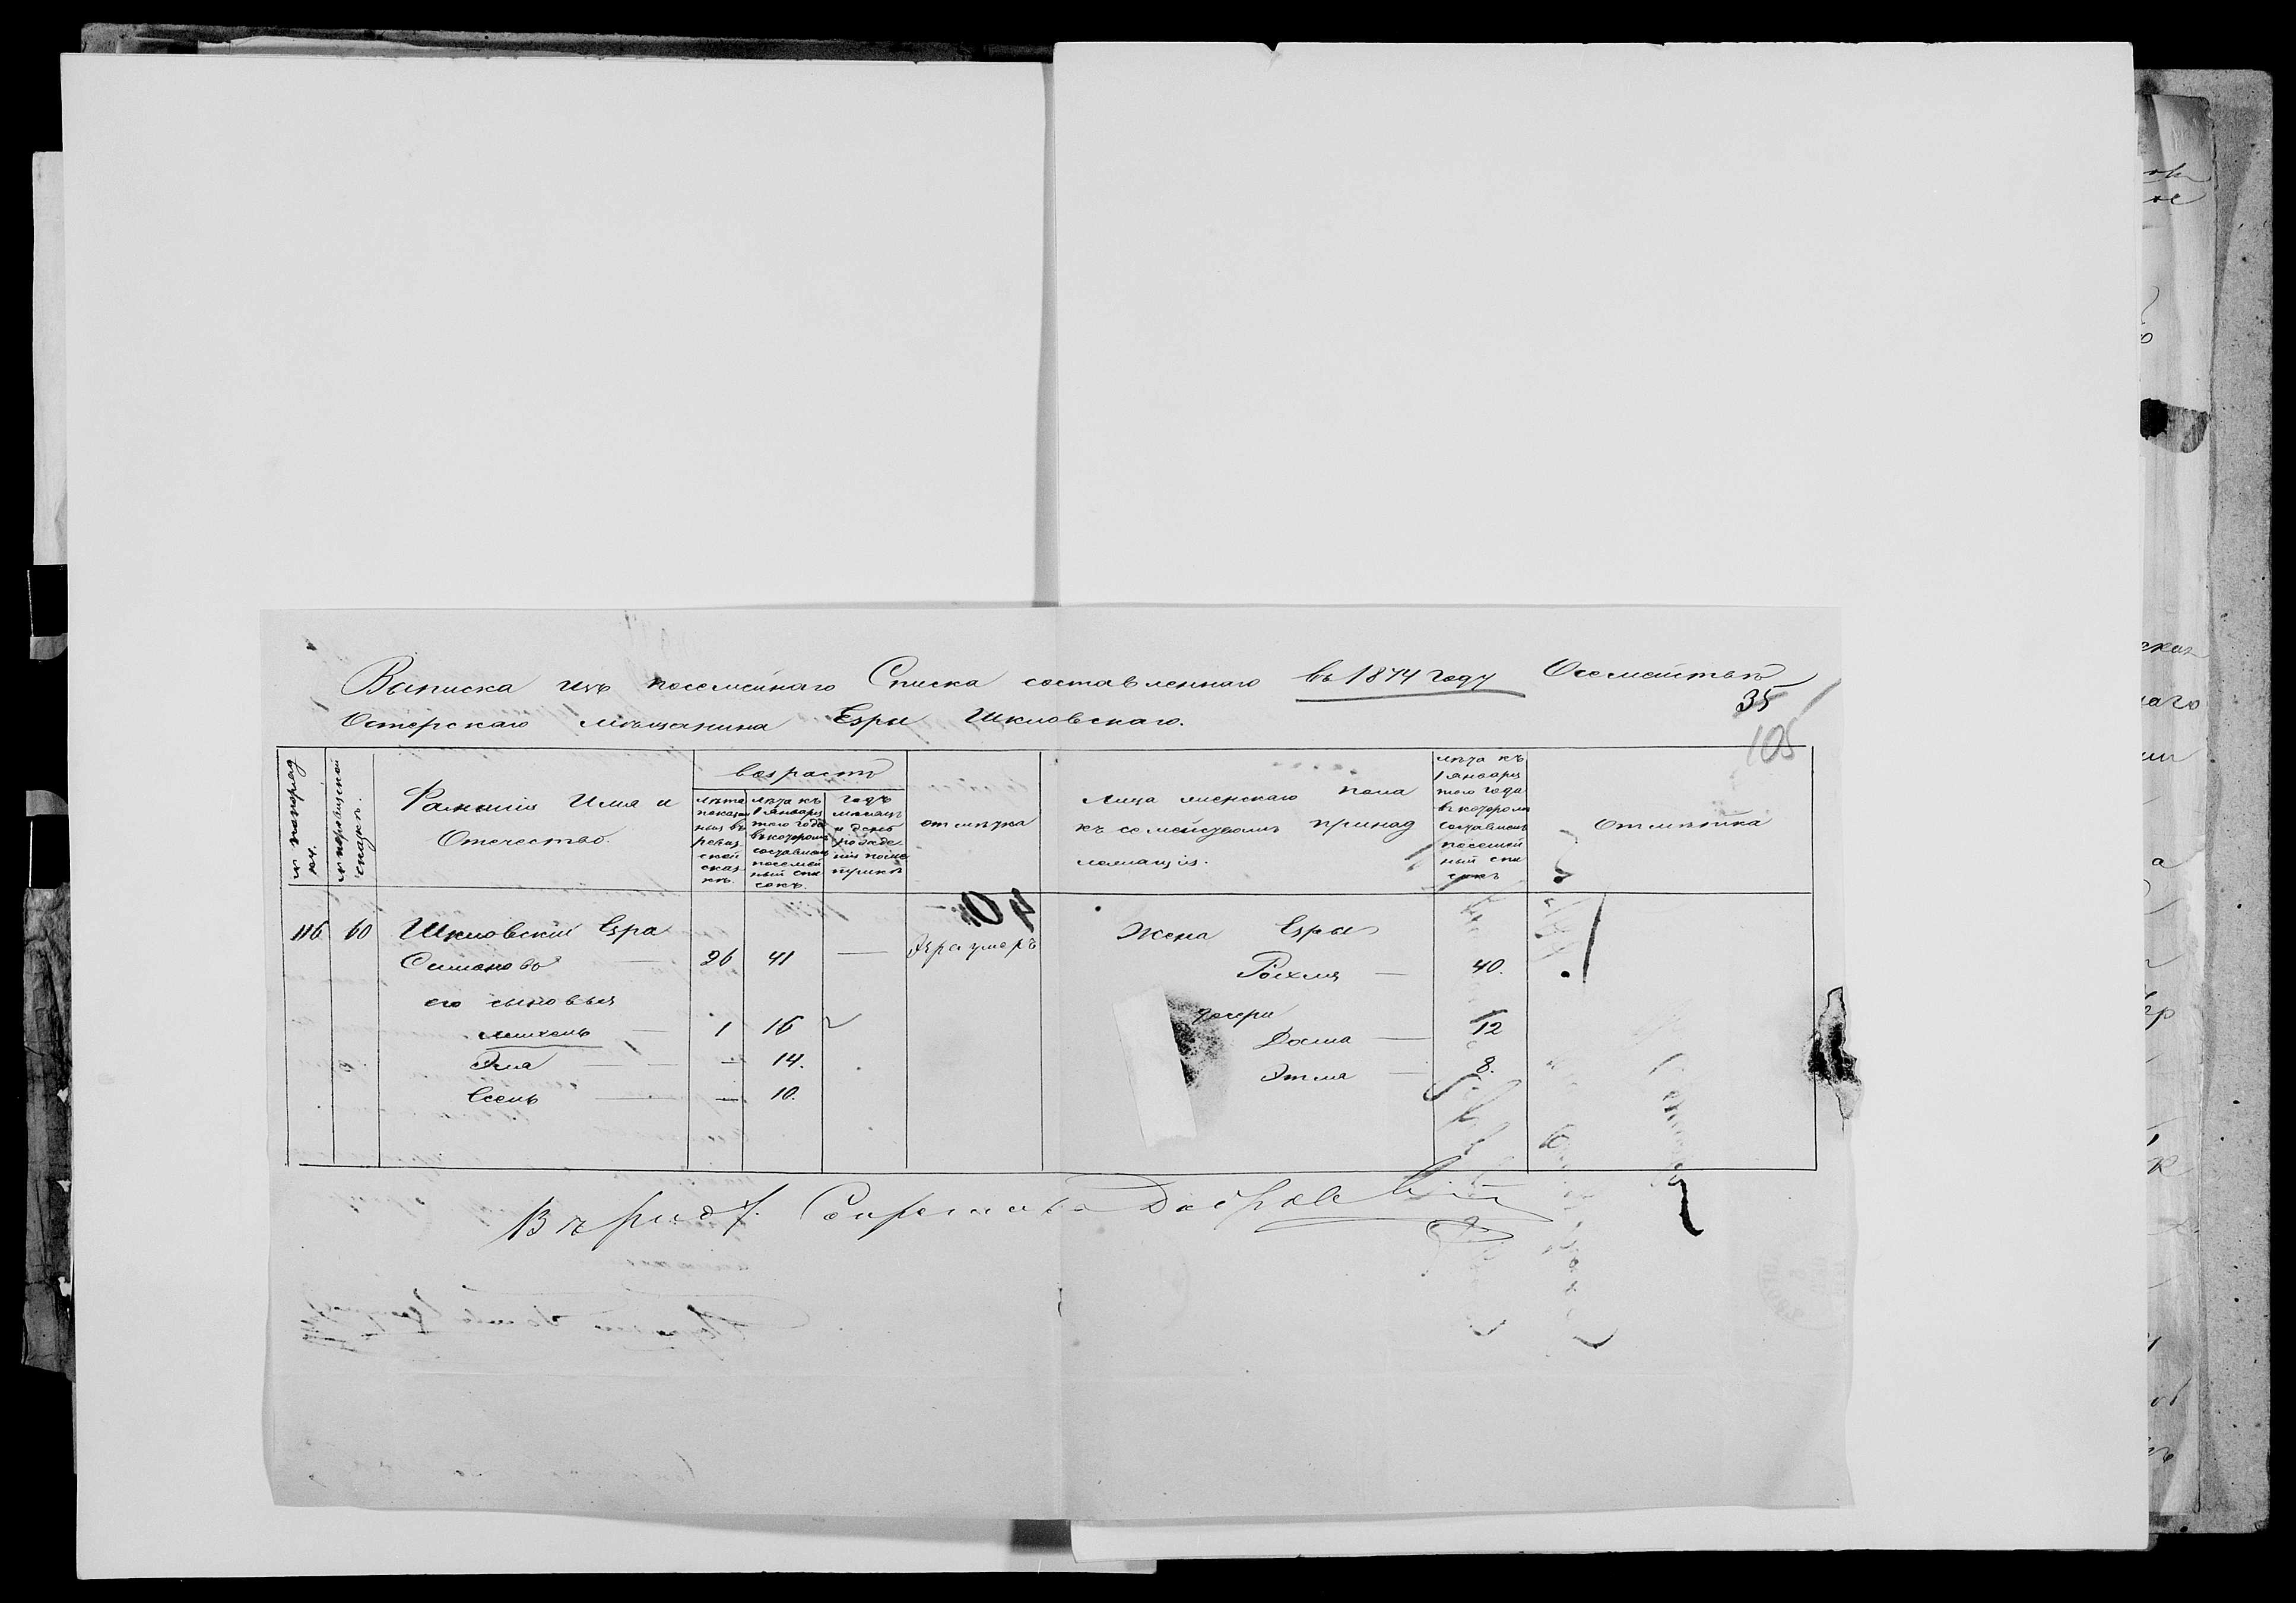 Выписка изъ посемейнаго Списка составленнаго въ 1874 году О семействѣ
Остерскаго мѣщанина Езры Шкловскаго.
35
105
№ по порядку.
№ по ревизской сказкѣ.
Фамилия Имя и
Отчество.
возрастъ
лѣта
показан
ныя въ
ревиз
ской
сказ
кѣ.
лѣта къ
1 Января
того года
въ которомъ
составленъ
посемей
ный спи
сокъ.
годъ
мѣсяцъ
и день
рожде
нія
отмѣтка
Лица женскаго пола
къ семействамъ принад
лежащія.
лѣта къ
1 Января
того года
въ которомъ
составленъ
посемей
ный спи
сокъ
Отмѣтка
116 60 Шкловскій Езра
Симоновъ — 26 41 — Эзра умеръ
его сыновья
— 1 16
Эла — — 14.
Есель — — 10.
Жена Езры
Рохля — 40.
дочери
Доша — 12
Этля — 8.